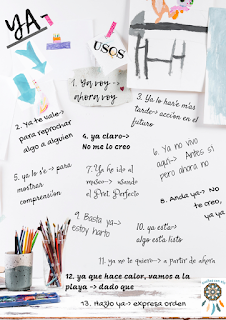 YA-
USOS
1. Ya voy ->
ahora voy
2. Ya te vale->
para reprochar
algo a alguien
3. Ya lo haré más
tarde-> acción en el
futuro
4. ya claro->
No me lo creo
5. ya lo sé -> para
mostrar
comprensión
6. Ya no vivo
aquí-> Antes sí
pero ahora no
7. Ya he ido al
museo-> usando
el Pret. Perfecto
8. Anda ya-> No
te creo,
ya ya
9. Basta ya->
estoy harto
10. ya está->
algo esta listo
11. ya no te quiero-> a partir de ahora
12. ya que hace calor, vamos a la
playa -> dado que
13. Hazlo ya-> expresa orden